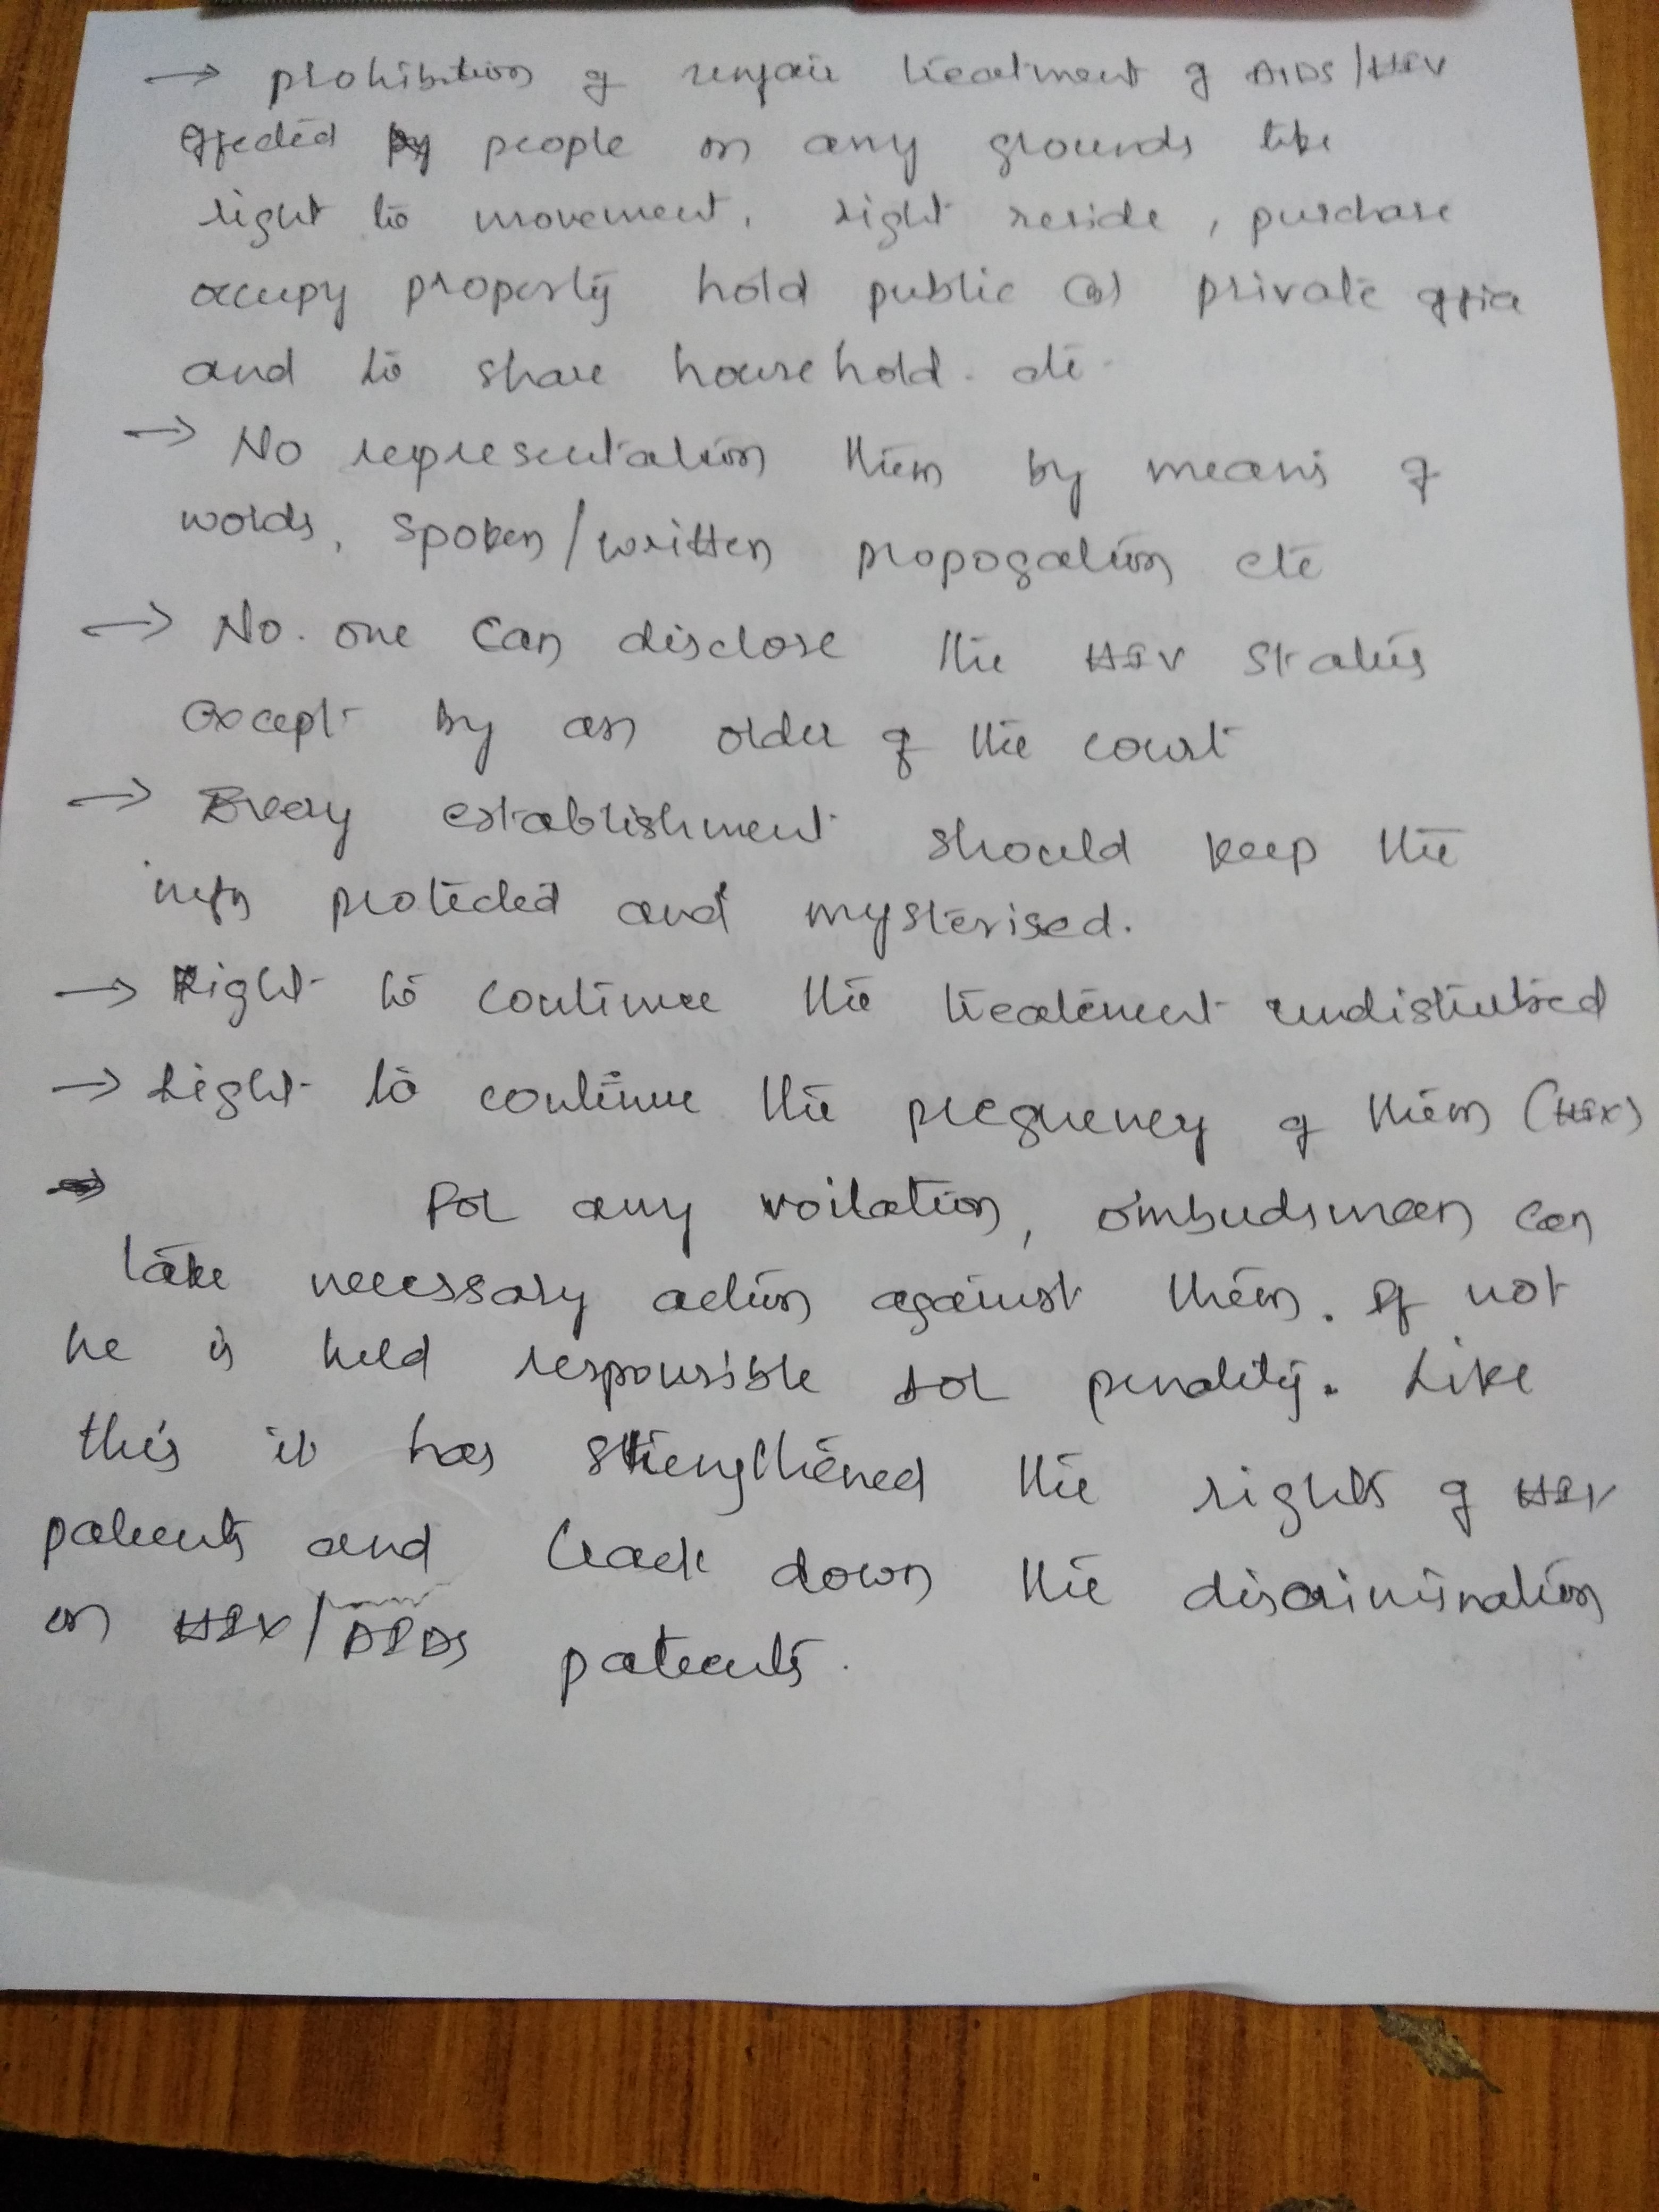 → prohibition of unfair treatment of AIDS/HIV
effected people on any grounds like
right to movement, right reside, purchase
occupy property hold public (or) private office
and to share household. etc.
→ No representation them by means of
words, spoken/written propogation etc
→ No. one can disclose the HIV status
except by an order of the court
→ Every establishment should keep the
infn protected and mysterised.
→ Right to continue the treatement undisturbed
→ Right to continue the pregnency of them (HIV)
For any voilation, ombudsman can
take necessary action against them. If not
he is held responsible for penality. Like
this it has strengthened the rights of HIV
patients and crack down the discrimination
on HIV/AIDS patients.